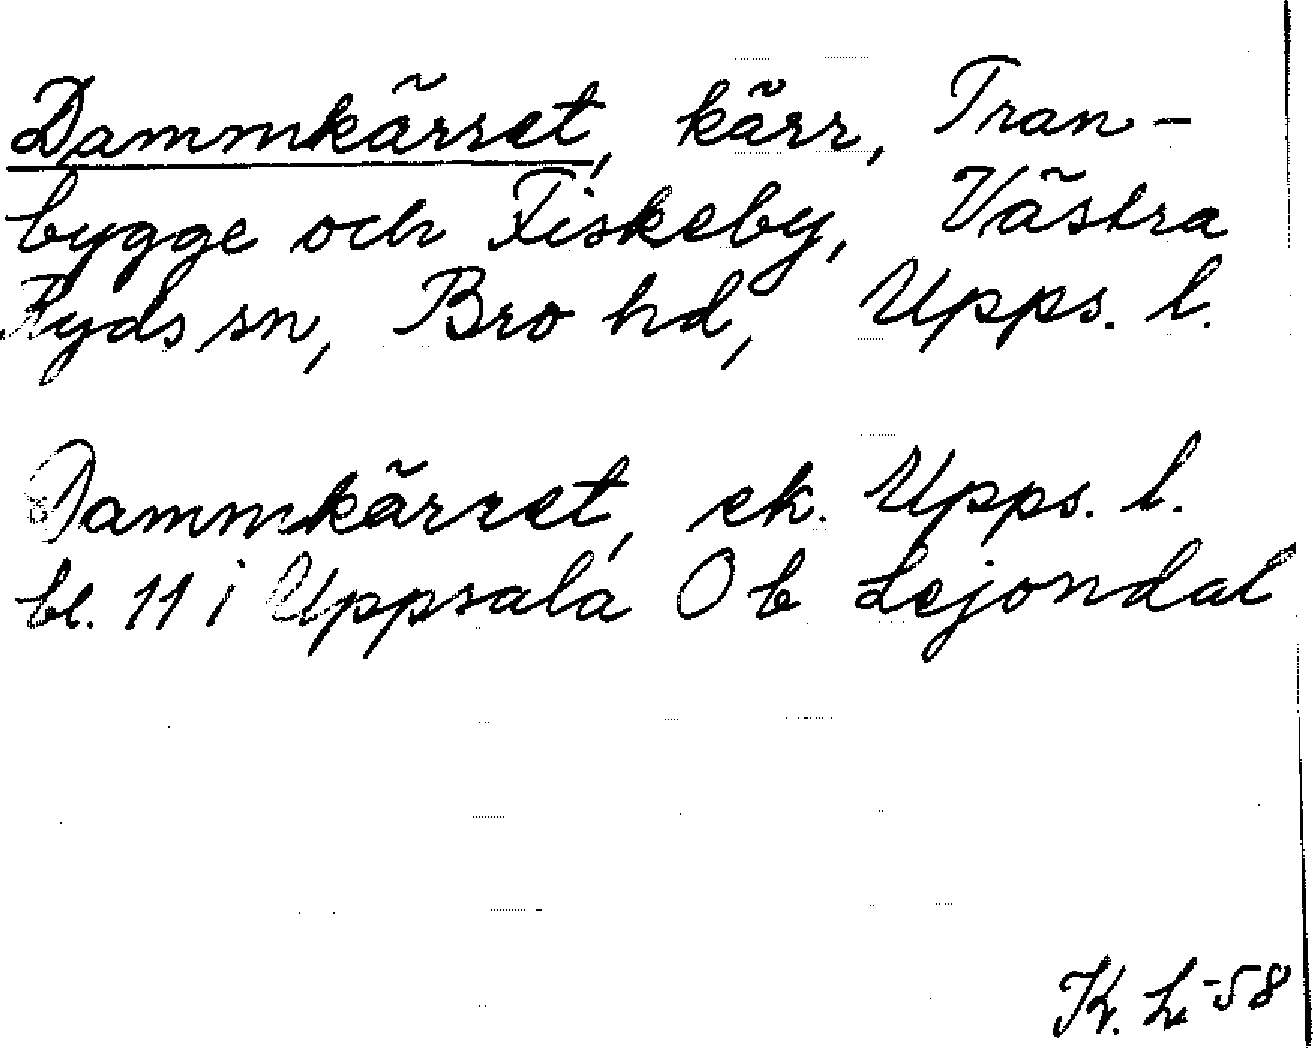 Dammkärret, kärr, Tran-
bygge och Fiskeby, Västra
Ryds sn, Bro hd, Upps. l.
Dammkärret, ek. Upps. l.
bl. 11 i Uppsala O b Lejondal
K. L -58